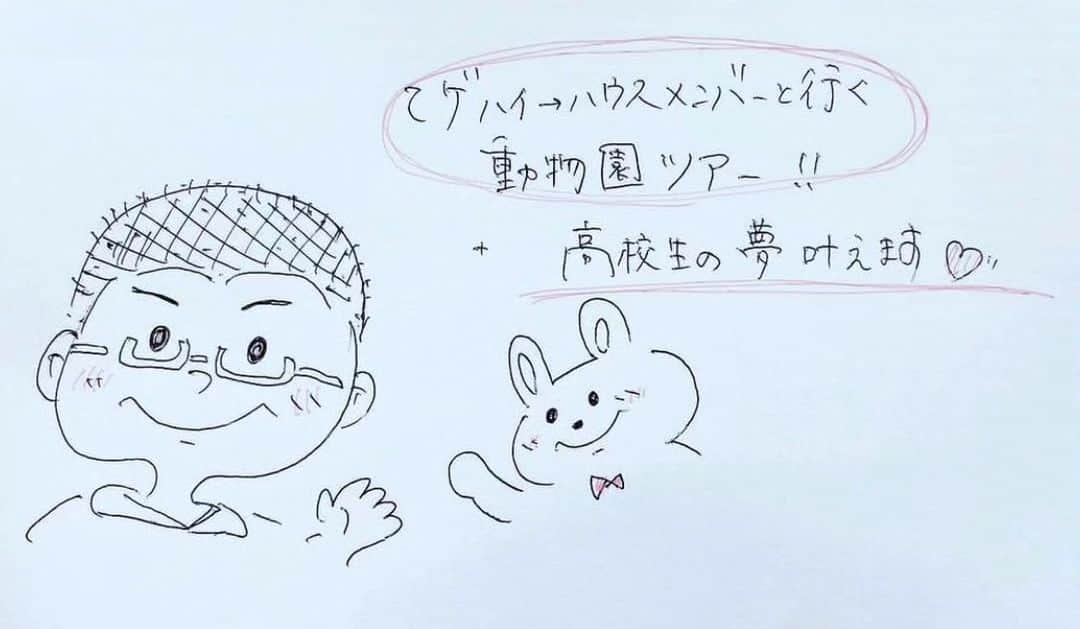 てゲハイ→ハウスメンバーと行く
動物園ツアー!!
+ 高校生の夢叶えます♡"